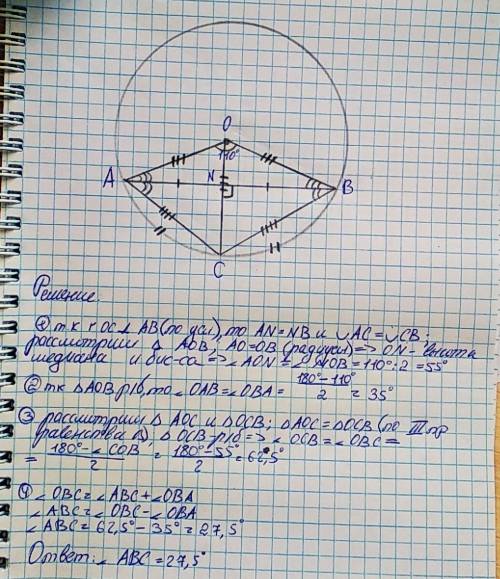 O
110°
A
N
B
C
Решение.
① т.к r OC⊥ AB (по усл), то AN=NB и ∪AC=∪CB;
рассмотрим △ AOB, AO=OB (радиусы) => ON - высота
медиана и бис-са => ∠AON=∠NOB=110°:2=55°
② тк △AOB р/б, то ∠OAB=∠OBA= 180°-110° / 2 = 35°
③ рассмотрим △ AOC и △OCB; △AOC=△OCB (по III пр
равенства △), △OCB-р/б => ∠OCB=∠OBC=
= 180°-∠COB / 2 = 180°-55° / 2 = 62,5°
④ ∠OBC=∠ABC+∠OBA
∠ABC=∠OBC-∠OBA
∠ABC=62,5°-35°=27,5°
Ответ: ∠ABC=27,5°